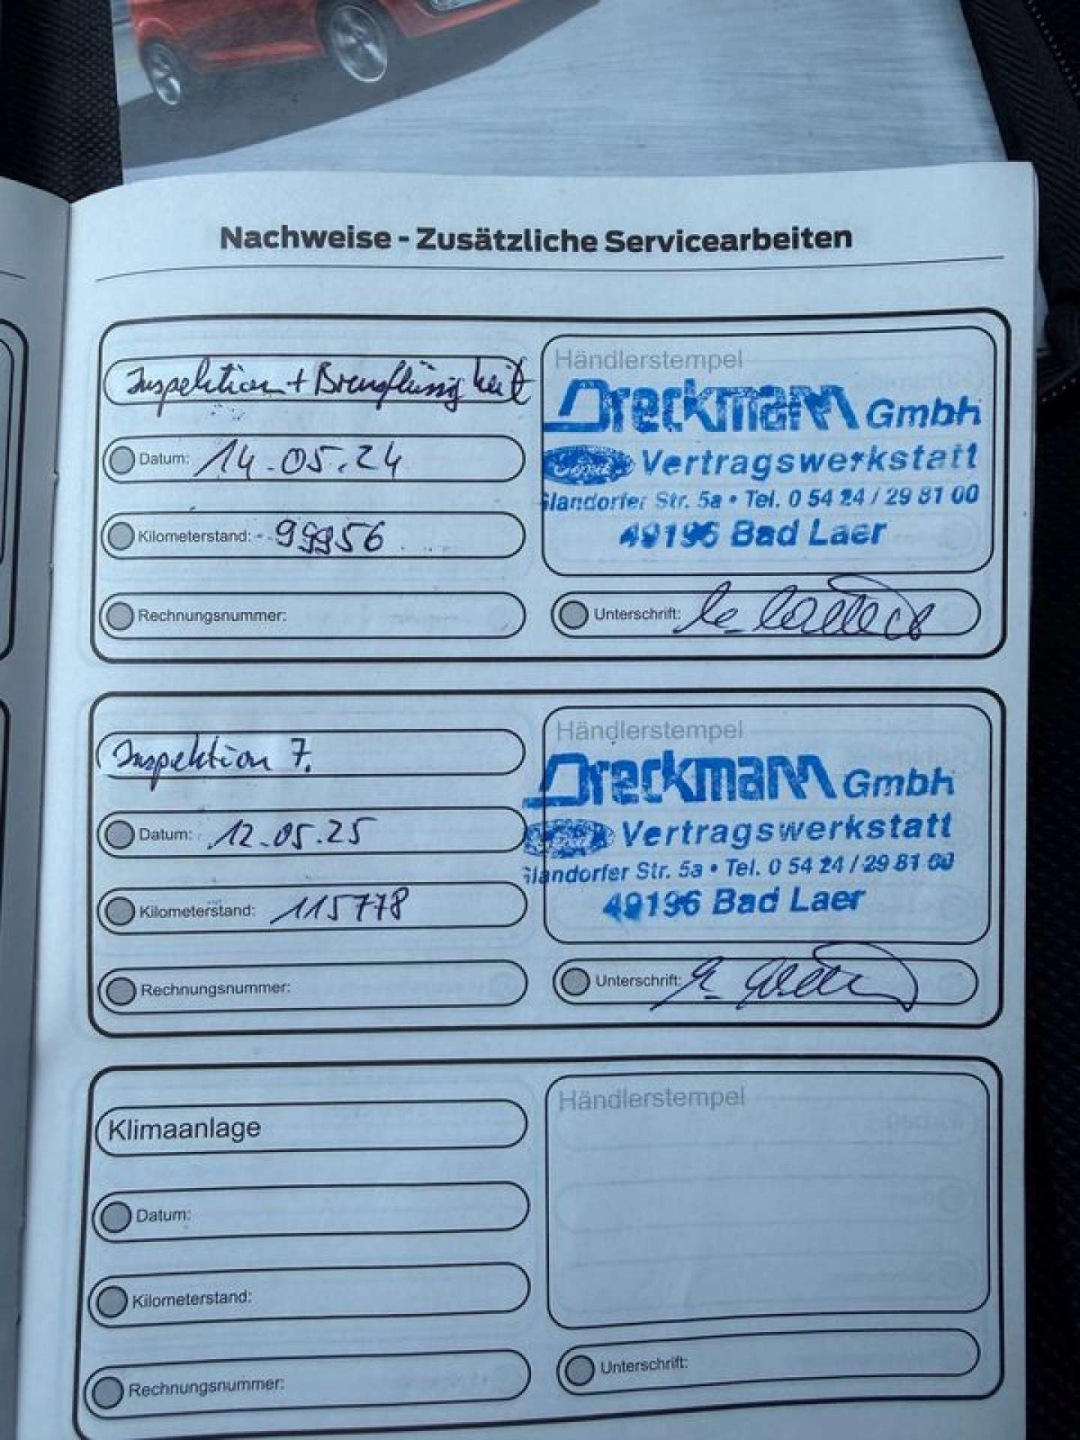 Nachweise - Zusätzliche Servicearbeiten
Inspektion + Bremsflüssigkeit
Datum: 14.05.24
Kilometerstand: 99956
Rechnungsnummer:
Händlerstempel
Dreckmann Gmbh
Ford Vertragswerkstatt
Glandorfer Str. 5a • Tel. 0 54 24 / 29 81 00
49196 Bad Laer
Unterschrift:
Inspektion 7.
Datum: 12.05.25
Kilometerstand: 115778
Rechnungsnummer:
Händlerstempel
Dreckmann Gmbh
Vertragswerkstatt
Glandorfer Str. 5a • Tel. 0 54 24 / 29 81 00
49196 Bad Laer
Unterschrift:
Klimaanlage
Datum:
Kilometerstand:
Rechnungsnummer:
Händlerstempel
Unterschrift: